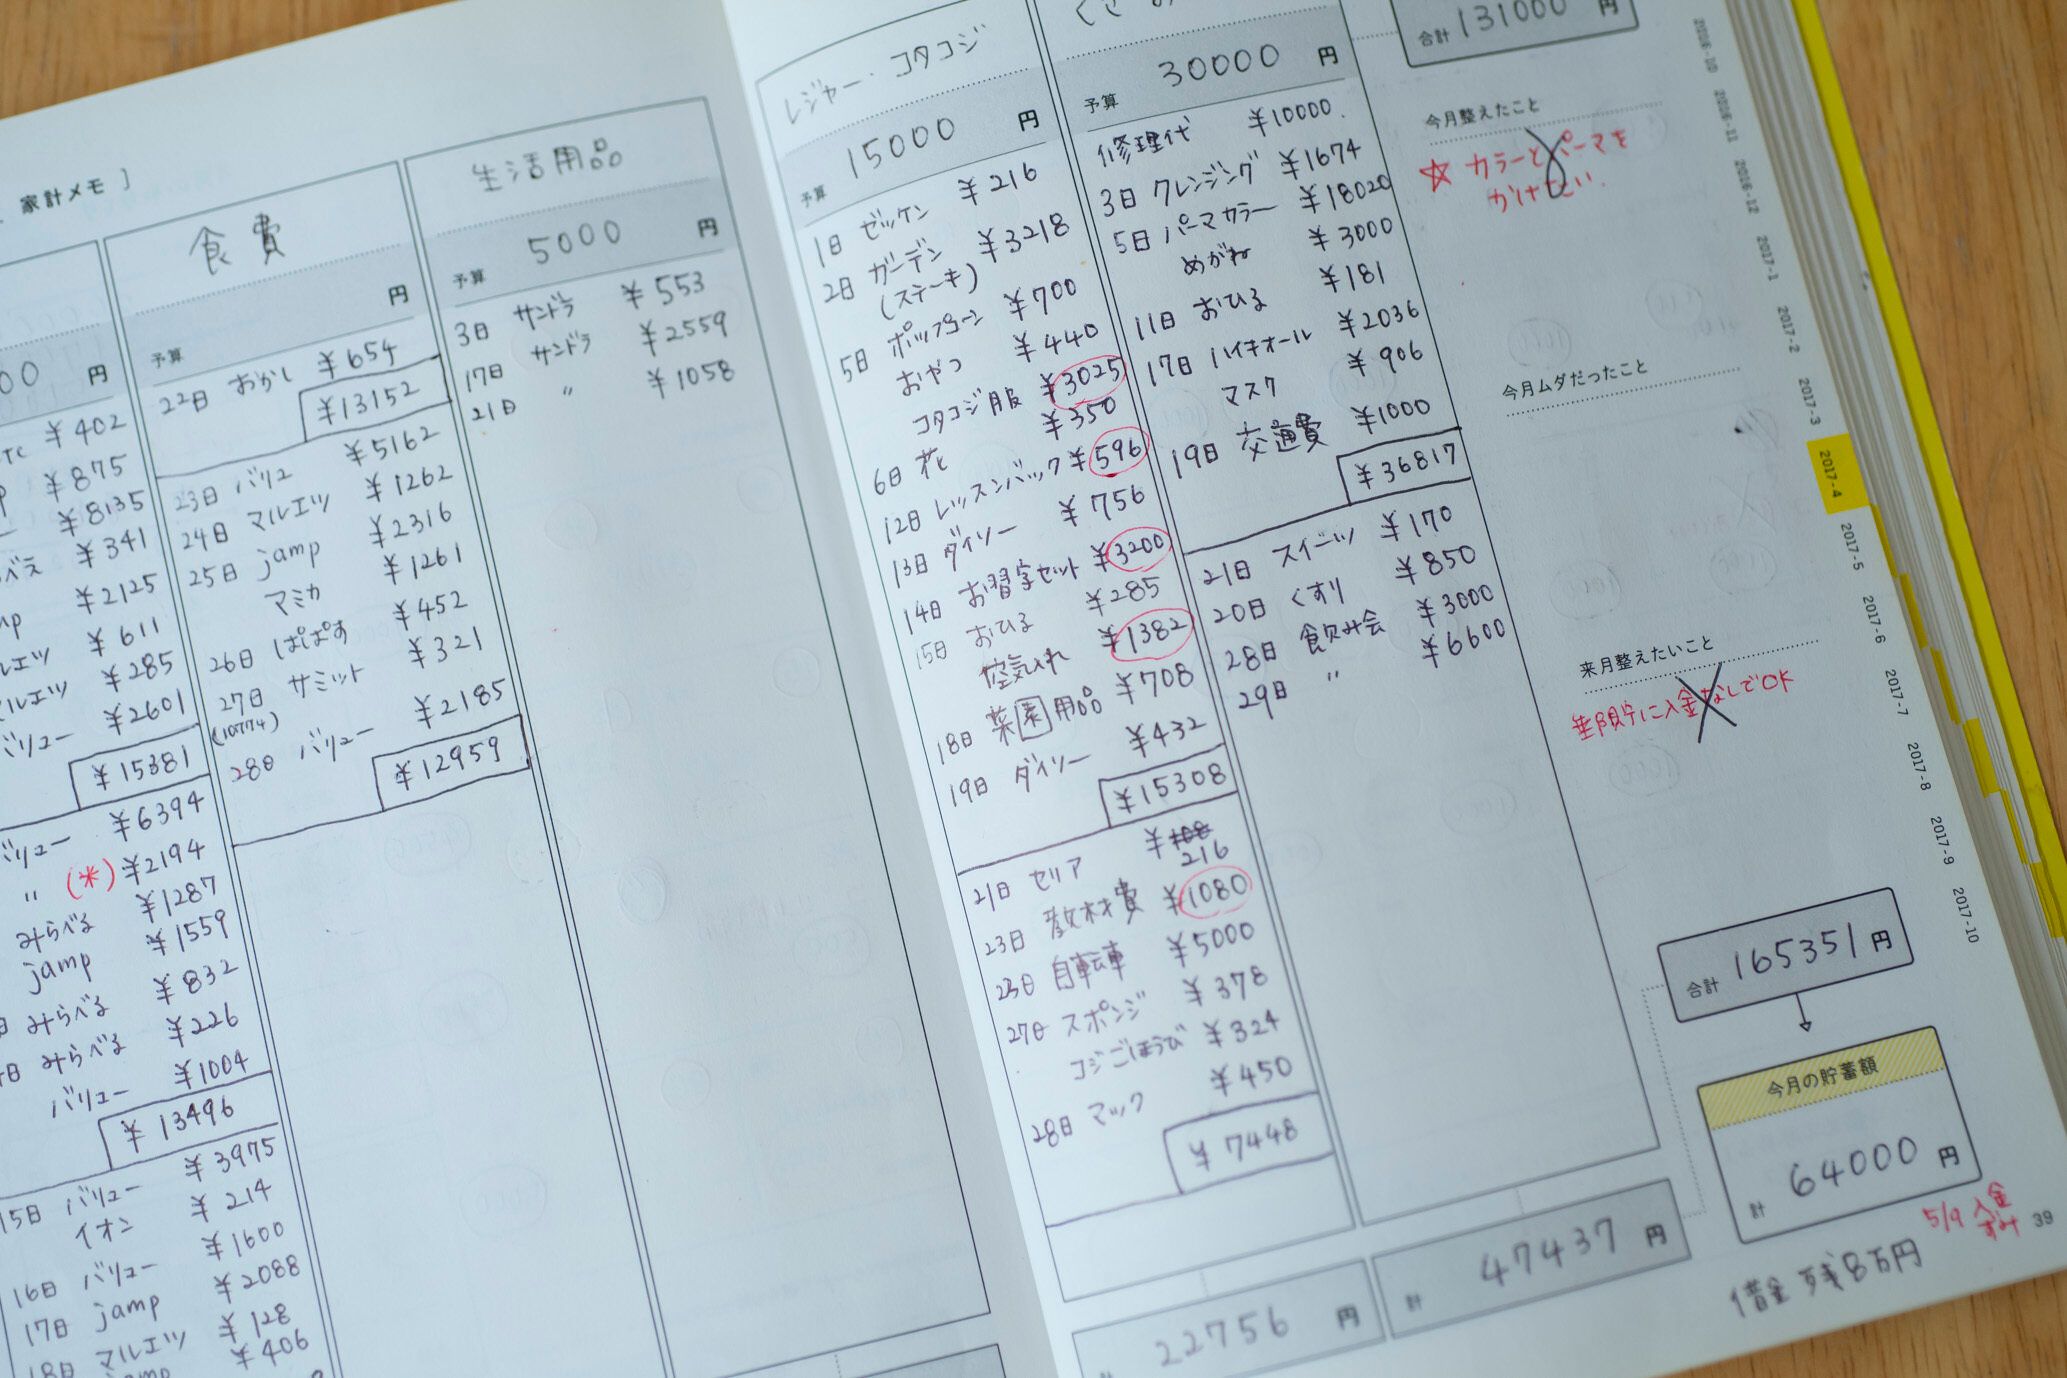 家計メモ 】
00 円
TC ¥402
¥875
¥8135
¥341
¥2125
¥611
¥285
バリュー ¥2601
¥15381
バリュー ¥6394
〃 (*) ¥2194
みらべる ¥1287
jamp ¥1559
みらべる ¥832
日 みらべる ¥226
バリュー ¥1004
¥13496
15日 バリュー ¥3975
イオン ¥214
16日 バリュー ¥1600
17日 jamp ¥2088
18日 マルエツ ¥128
¥406
食費
予算 円
22日 おかし ¥654
¥13152
23日 バリュ ¥5162
24日 マルエツ ¥1262
25日 jamp ¥2316
マミカ ¥1261
26日 ぱぱす ¥452
27日 サミット ¥321
28日 バリュー ¥2185
¥12959
生活用品
予算 5000 円
3日 サンドラ ¥553
17日 サンドラ ¥2559
21日 〃 ¥1058
レジャー・コタコジ
予算 15000 円
1日 ゼッケン ¥216
2日 ガーデン ¥3218
(ステーキ)
5日 ポップコーン ¥700
おやつ ¥440
コタコジ服 ¥3025
6日 花 ¥350
12日 レッスンバック ¥596
13日 ダイソー ¥756
14日 お習字セット ¥3200
15日 おひる ¥285
空気入れ ¥1382
18日 菜園用品 ¥708
19日 ダイソー ¥432
¥15308
21日 セリア ¥108
216
23日 教材費 ¥1080
23日 自転車 ¥5000
27日 スポンジ ¥378
コジごほうび ¥324
28日 マック ¥450
¥7448
22756 円
予算 30000 円
修理代 ¥10000
3日 クレンジング ¥1674
5日 パーマカラー ¥18020
めがね ¥3000
11日 おひる ¥181
17日 ハイキオール ¥2036
マスク ¥906
19日 交通費 ¥1000
¥36817
21日 スイーツ ¥170
20日 くすり ¥850
28日 飲み会 ¥3000
29日 〃 ¥6600
計 47437 円
合計 131000 円
今月整えたこと
☆ カラーとパーマを
かけたい.
今月ムダだったこと
来月整えたいこと
に入金なしでOK
合計 165351 円
今月の貯蓄額
計 64000 円
5/9 入金
ずみ
借金 残8万円
39
2016-10
2016-11
2016-12
2017-1
2017-2
2017-3
2017-4
2017-5
2017-6
2017-7
2017-8
2017-9
2017-10